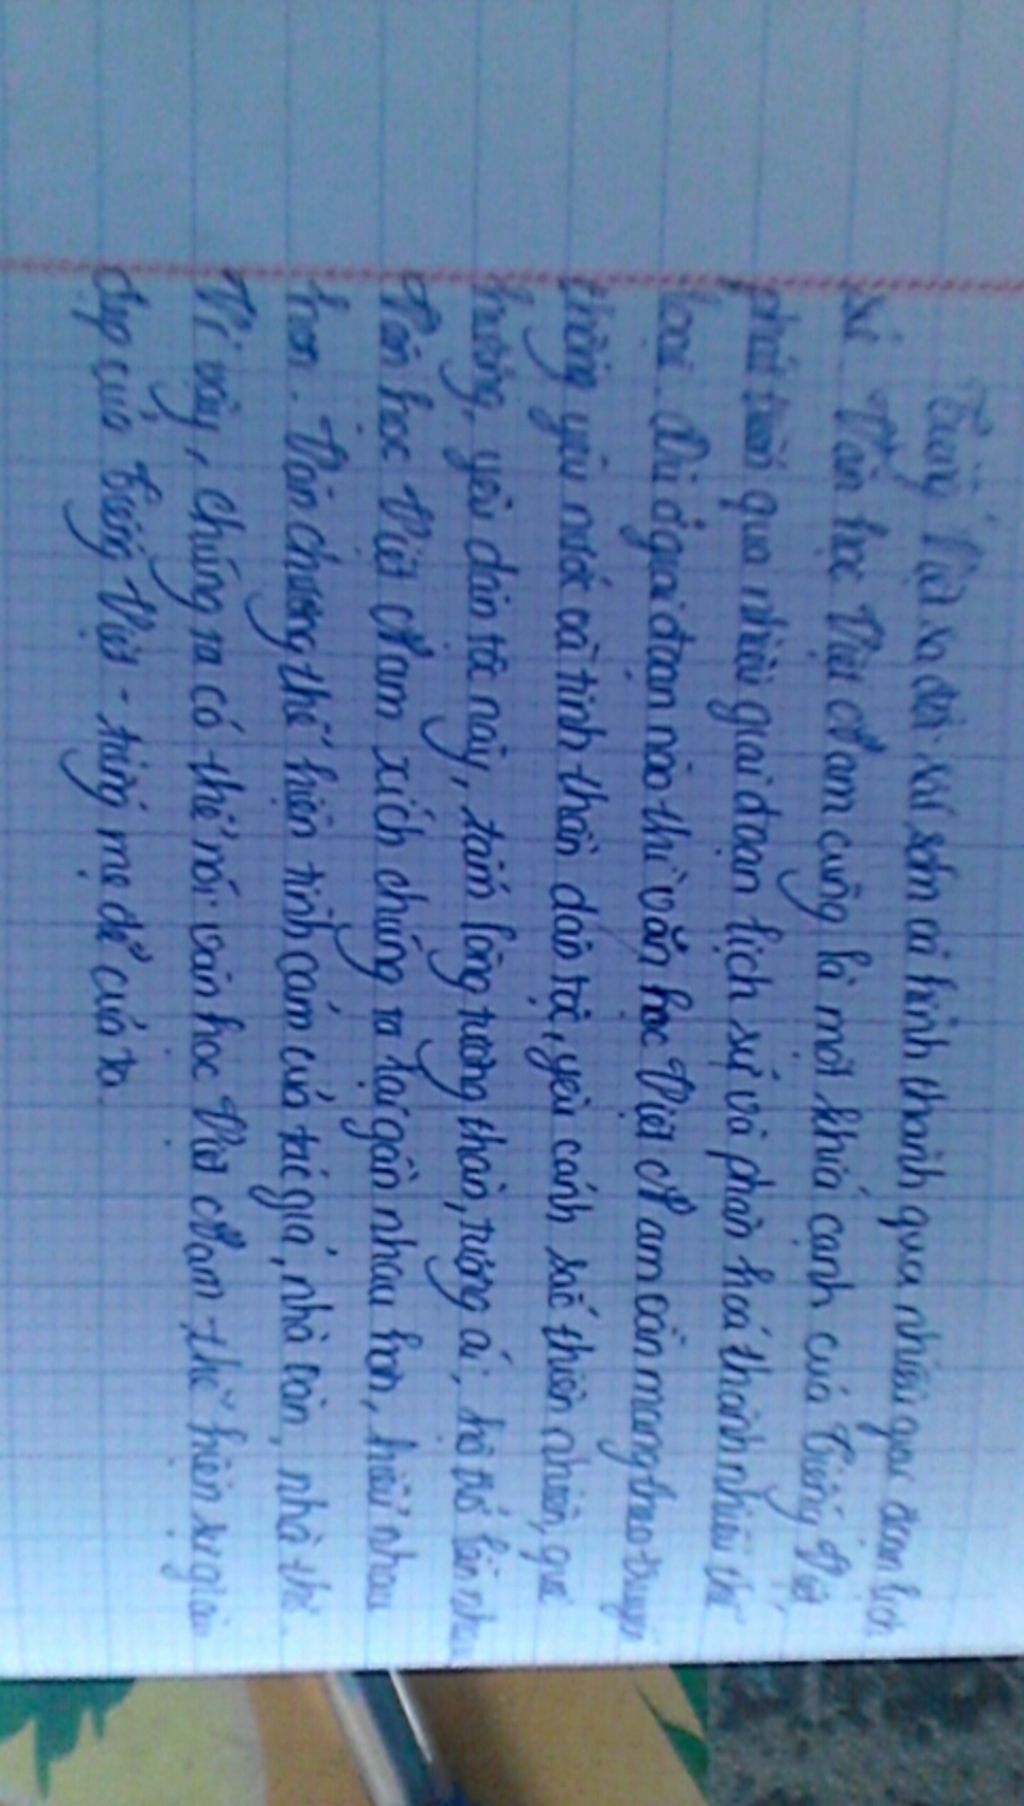 Tiếng Việt ra đời rất sớm và hình thành qua nhiều giai đoạn lịch
sử. Văn học Việt Nam cũng là một khía cạnh của Tiếng Việt,
phát triển qua nhiều giai đoạn lịch sử và phân hoá thành nhiều thể
loại. Dù ở giai đoạn nào thì văn học Việt Nam vẫn mang theo truyền
thống yêu nước và tinh thần dân tộc, yêu cảnh sắc thiên nhiên, quê
hương, yêu dân tộc này, tấm lòng tương thân, tương ái, hỗ trợ lẫn nhau
Văn học Việt Nam xích chúng ta lại gần nhau hơn, hiểu nhau
hơn. Văn chương thể hiện tình cảm của tác giả, nhà văn, nhà thơ.
Vì vậy, chúng ta có thể nói văn học Việt Nam thể hiện sự giàu
đẹp của tiếng Việt - tiếng mẹ đẻ của ta.